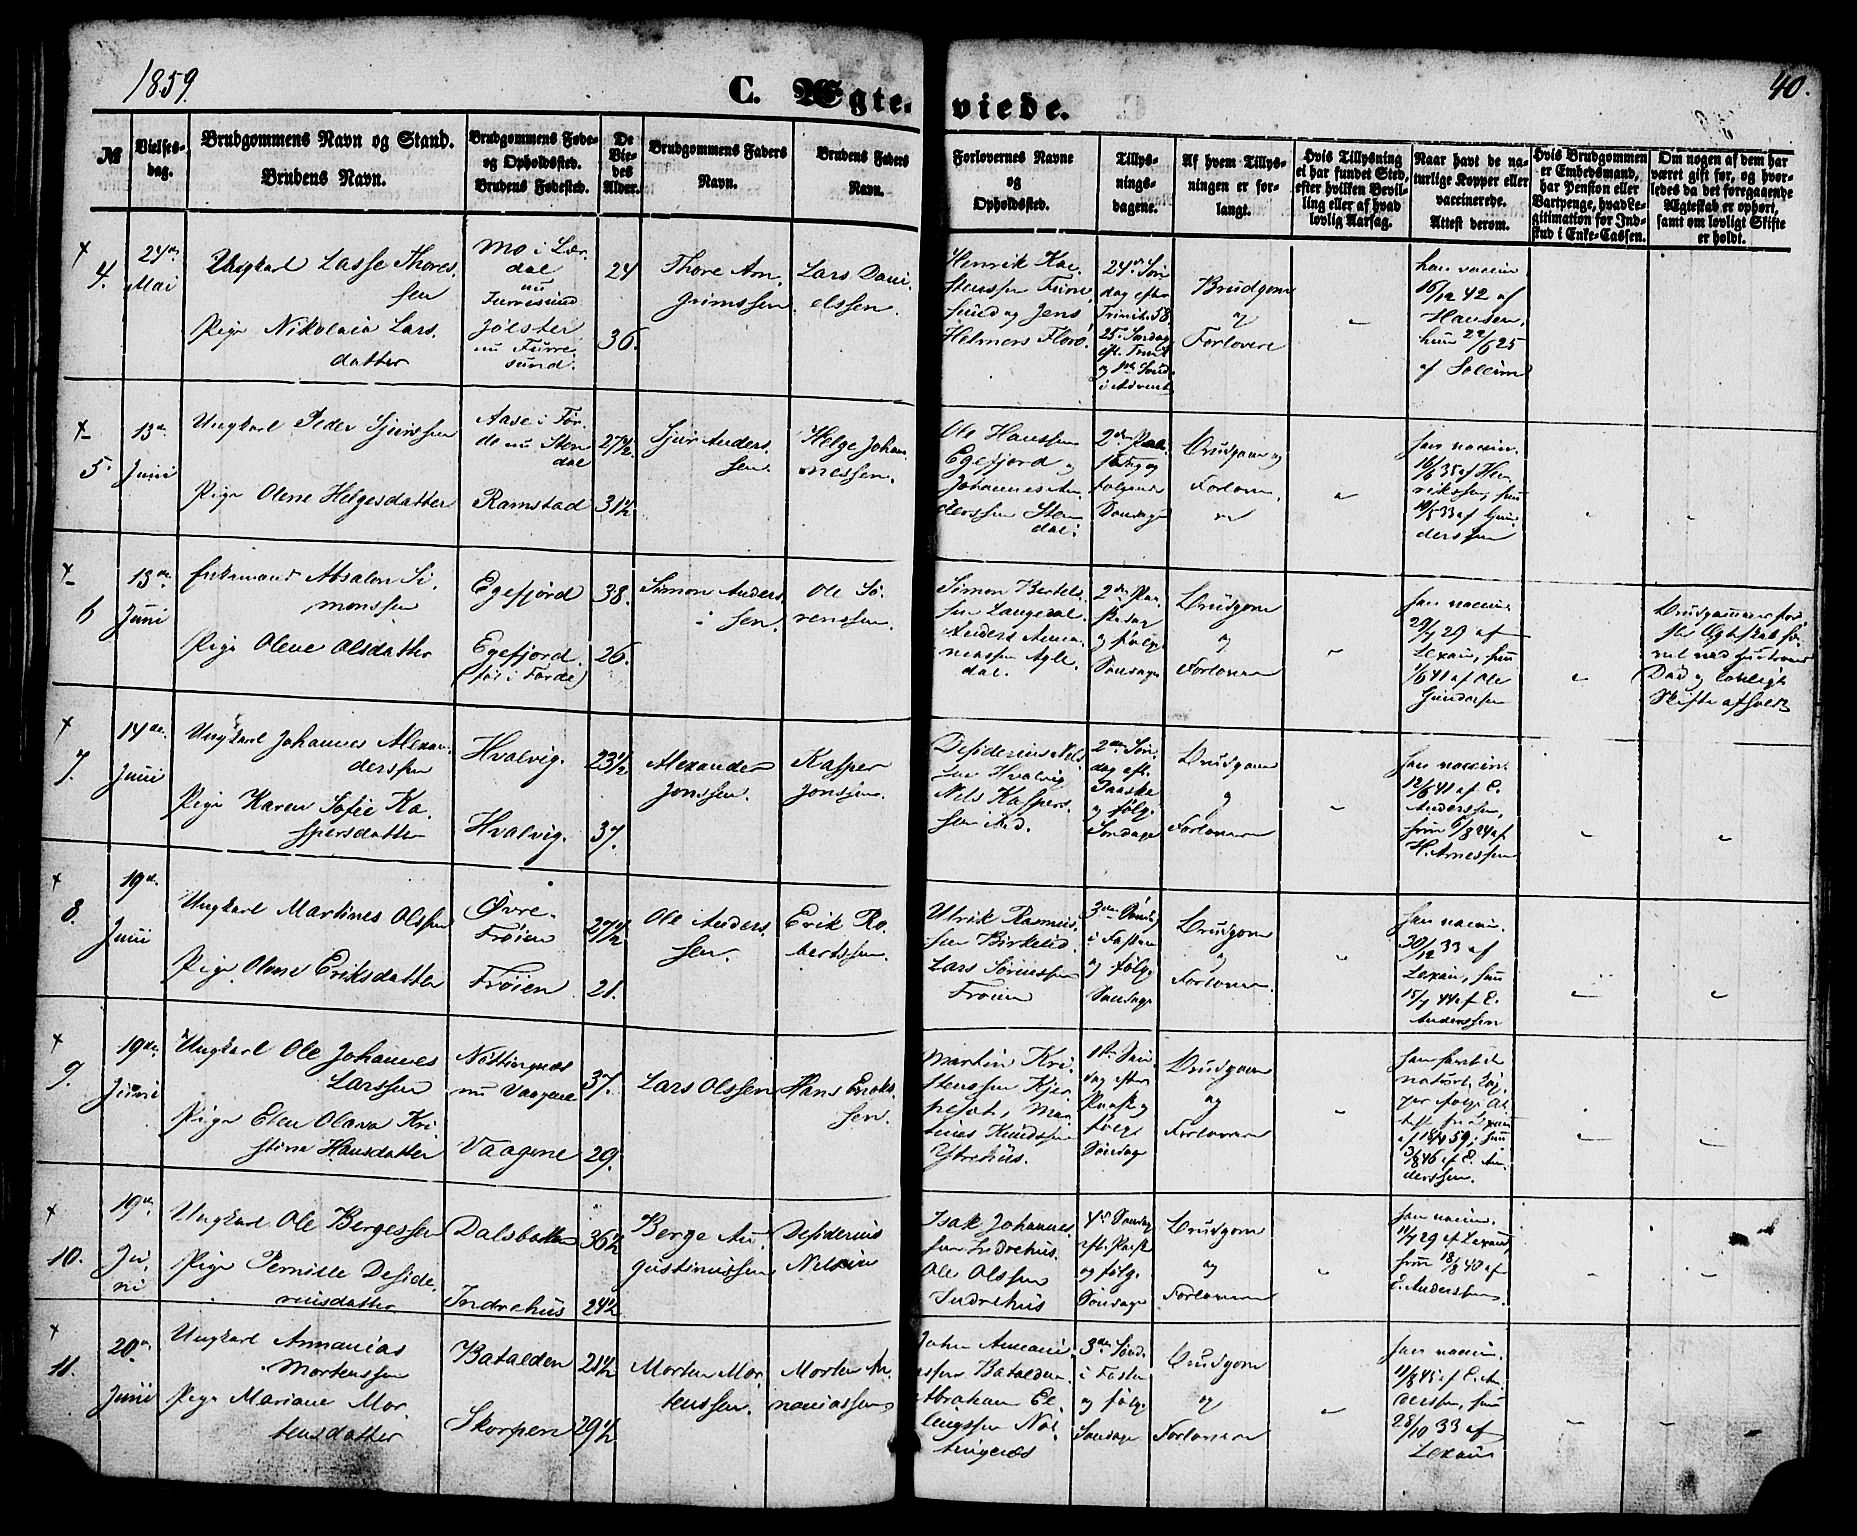 1859.
C. Ægte-
viede.
40.
№
Vielses-
dag.
Brudgommens Navn og Stand.
Brudens Navn.
Brudgommens Føde-
og Opholdssted.
Brudens Fødested.
De
Vie-
des
Alder.
Brudgommens Faders
Navn.
Brudens Faders
Navn.
Forlovernes Navne
og
Opholdssted.
Tillys-
nings-
dagene.
Af hvem Tillys-
ningen er for-
langt.
Hvis Tillysning
ei har fundet Sted,
efter hvilken Bevil-
ling eller af hvad
lovlig Aarsag.
Naar havt de na-
turlige Kopper eller
vaccinerede.
Attest derom.
Hvis Brudgommen
er Embedsmand,
har Pension eller
Vartpenge, hvad Le-
gitimation for Ind-
skud i Enke-Cassen.
Om nogen af dem har
været gift før, og hvor-
ledes da det foregaaende
Ægteskab er ophørt,
samt om lovligt Skifte
er holdt.
4.
24de
Mai
Ungkarl Lasse Thores
sen
Pige Nikolaia Lars
datter
Mo i Lær
dal
nu
Furresund
Jølster
nu Furre
sund.
24
36.
Thore Arn
grimssen
Lars Dani
elssen.
Henrik Kar
stenssen Furre
sund og Jens
Helmers Florø.
24de Søn
dag efter
Trinit. 58,
25 Søndag
eft. Trinit
og 1ste Sønd.
i Advent
Brudgom
og
Forlovere
han vaccin
16/12 42 af
Hansen,
hun 22/6 25
af Solem
5.
13de
Juni
Ungkarl Peder Sjurssen
Pige Olene Helgesdatter
Aase i Før
de nu Sten
dal
Ramstad
27½.
31½
Sjur Anders
sen.
Helge Johan
nessen.
Ole Hanssen
Egefjord og
Johannes An
derssen Sten
dal.
2den Paa
skedag og
følgende
Søndage
Brudgom og
Forlovere
han vaccin.
16/6 35 af Hen
rikssen, hun
/5 33 af Gun
derssen
6
13de
Juni
Enkemand Absalon Si
monssen
Pige Olene Olsdatter
Egefjord
Egefjord.
(føt i Førde)
38.
26.
Simon Anders
sen.
Ole Sø
renssen.
Simon Bertels
sen Langedal
Anders Anna
niassen Agle
dal.
2den Paa
skedag
og følg.
Søndage
Brudgom
og
Forlovere
han vaccin.
29/7 29 af
Lexau, hun
1/6 41 af Ole
Gunderssen
Brudgommens før
ste Ægteskab
ved Hustruens
Død og lovligt
Skifte afholdt
7.
14de
Juni
Ungkarl Johannes Alexan
derssen
Pige Karen Sofie Ka
spersdatter
Hvalvig.
Hvalvig.
23½
37.
Alexander
Jonssen.
Kasper
Jonssen.
Desiderius Nils
sen Hvalvig
Nils Kaspers
sen ibid.
2den Søn
dag eft.
Paaske
og følg.
Søndage
Brudgom
og
Forlovere
han vaccin.
12/6 41 af E.
Anderssen,
hun 6/8 24 af
H. Arnessen
8.
19de
Juni
Ungkarl Martines Olssen
Pige Olene Eriksdatter
Øvre-
Frøien
Frøien
27½.
21.
Ole Anders
sen.
Erik Ro
bertssen.
Ulrik Rasmus
sen Birkelid.
Lars Sørenssen
Frøien
3die Søndag
i Fasten
og følg.
Søndage
Brudgom
og
Forlovere.
han vaccin.
30/12 33 af
Lexau, hun
15/7 44 af E.
Anderssen
9.
19de
Juni
Ungkarl Ole Johannes
Larssen
Pige Elen Olava Kri
stine Hansdatter
Nøttingnæs
nu Vaagene
Vaagene
37.
29.
Lars Olssen
Hans Enoks
sen.
Martin Kri
stenssen Kjer
Mar
tines Knudssen
Ytrehus.
1ste Søn
dag efter
Paaske og
følg.
Søndage
Brudgom
og
Forlovere
han havt de
naturl. Kop
per ifølge At
test fra Lexau
af 18/4 59, hun
3/8 46 af E. An
derssen.
10.
19de
Ju
ni
Ungkarl Ole Bergessen
Pige Pernille Deside
riusdatter
Dalsbotten
Indrehus
36½
24½
Berge Au
gustinussen
Desiderius
Nelssen
Isak Johannes
sen Indrehus.
Ole Olssen
Indrehus
4de Søndag
eft. Paaske
og følg.
Søndage
Brudgom
og
Forlovere
han vaccin.
11/7 29 af Lexau,
hun 18/8 40 af
E. Anderssen.
11.
20de
Juni
Ungkarl Annanias
Mortenssen
Pige Mariane Mor
tensdatter
Batalden
Skorpen
21½
29½
Morten Mor
tenssen.
Morten An
naniassen
John Annani
assen Batalden
Abraham El
lingssen Nøt
tingnæs
3die Sønd.
i Fasten
og følg.
Søndage
Brudgom
og
Forlovere
han vaccin.
11/8 45 af E. An
derssen, hun
28/10 33 af
Lexau